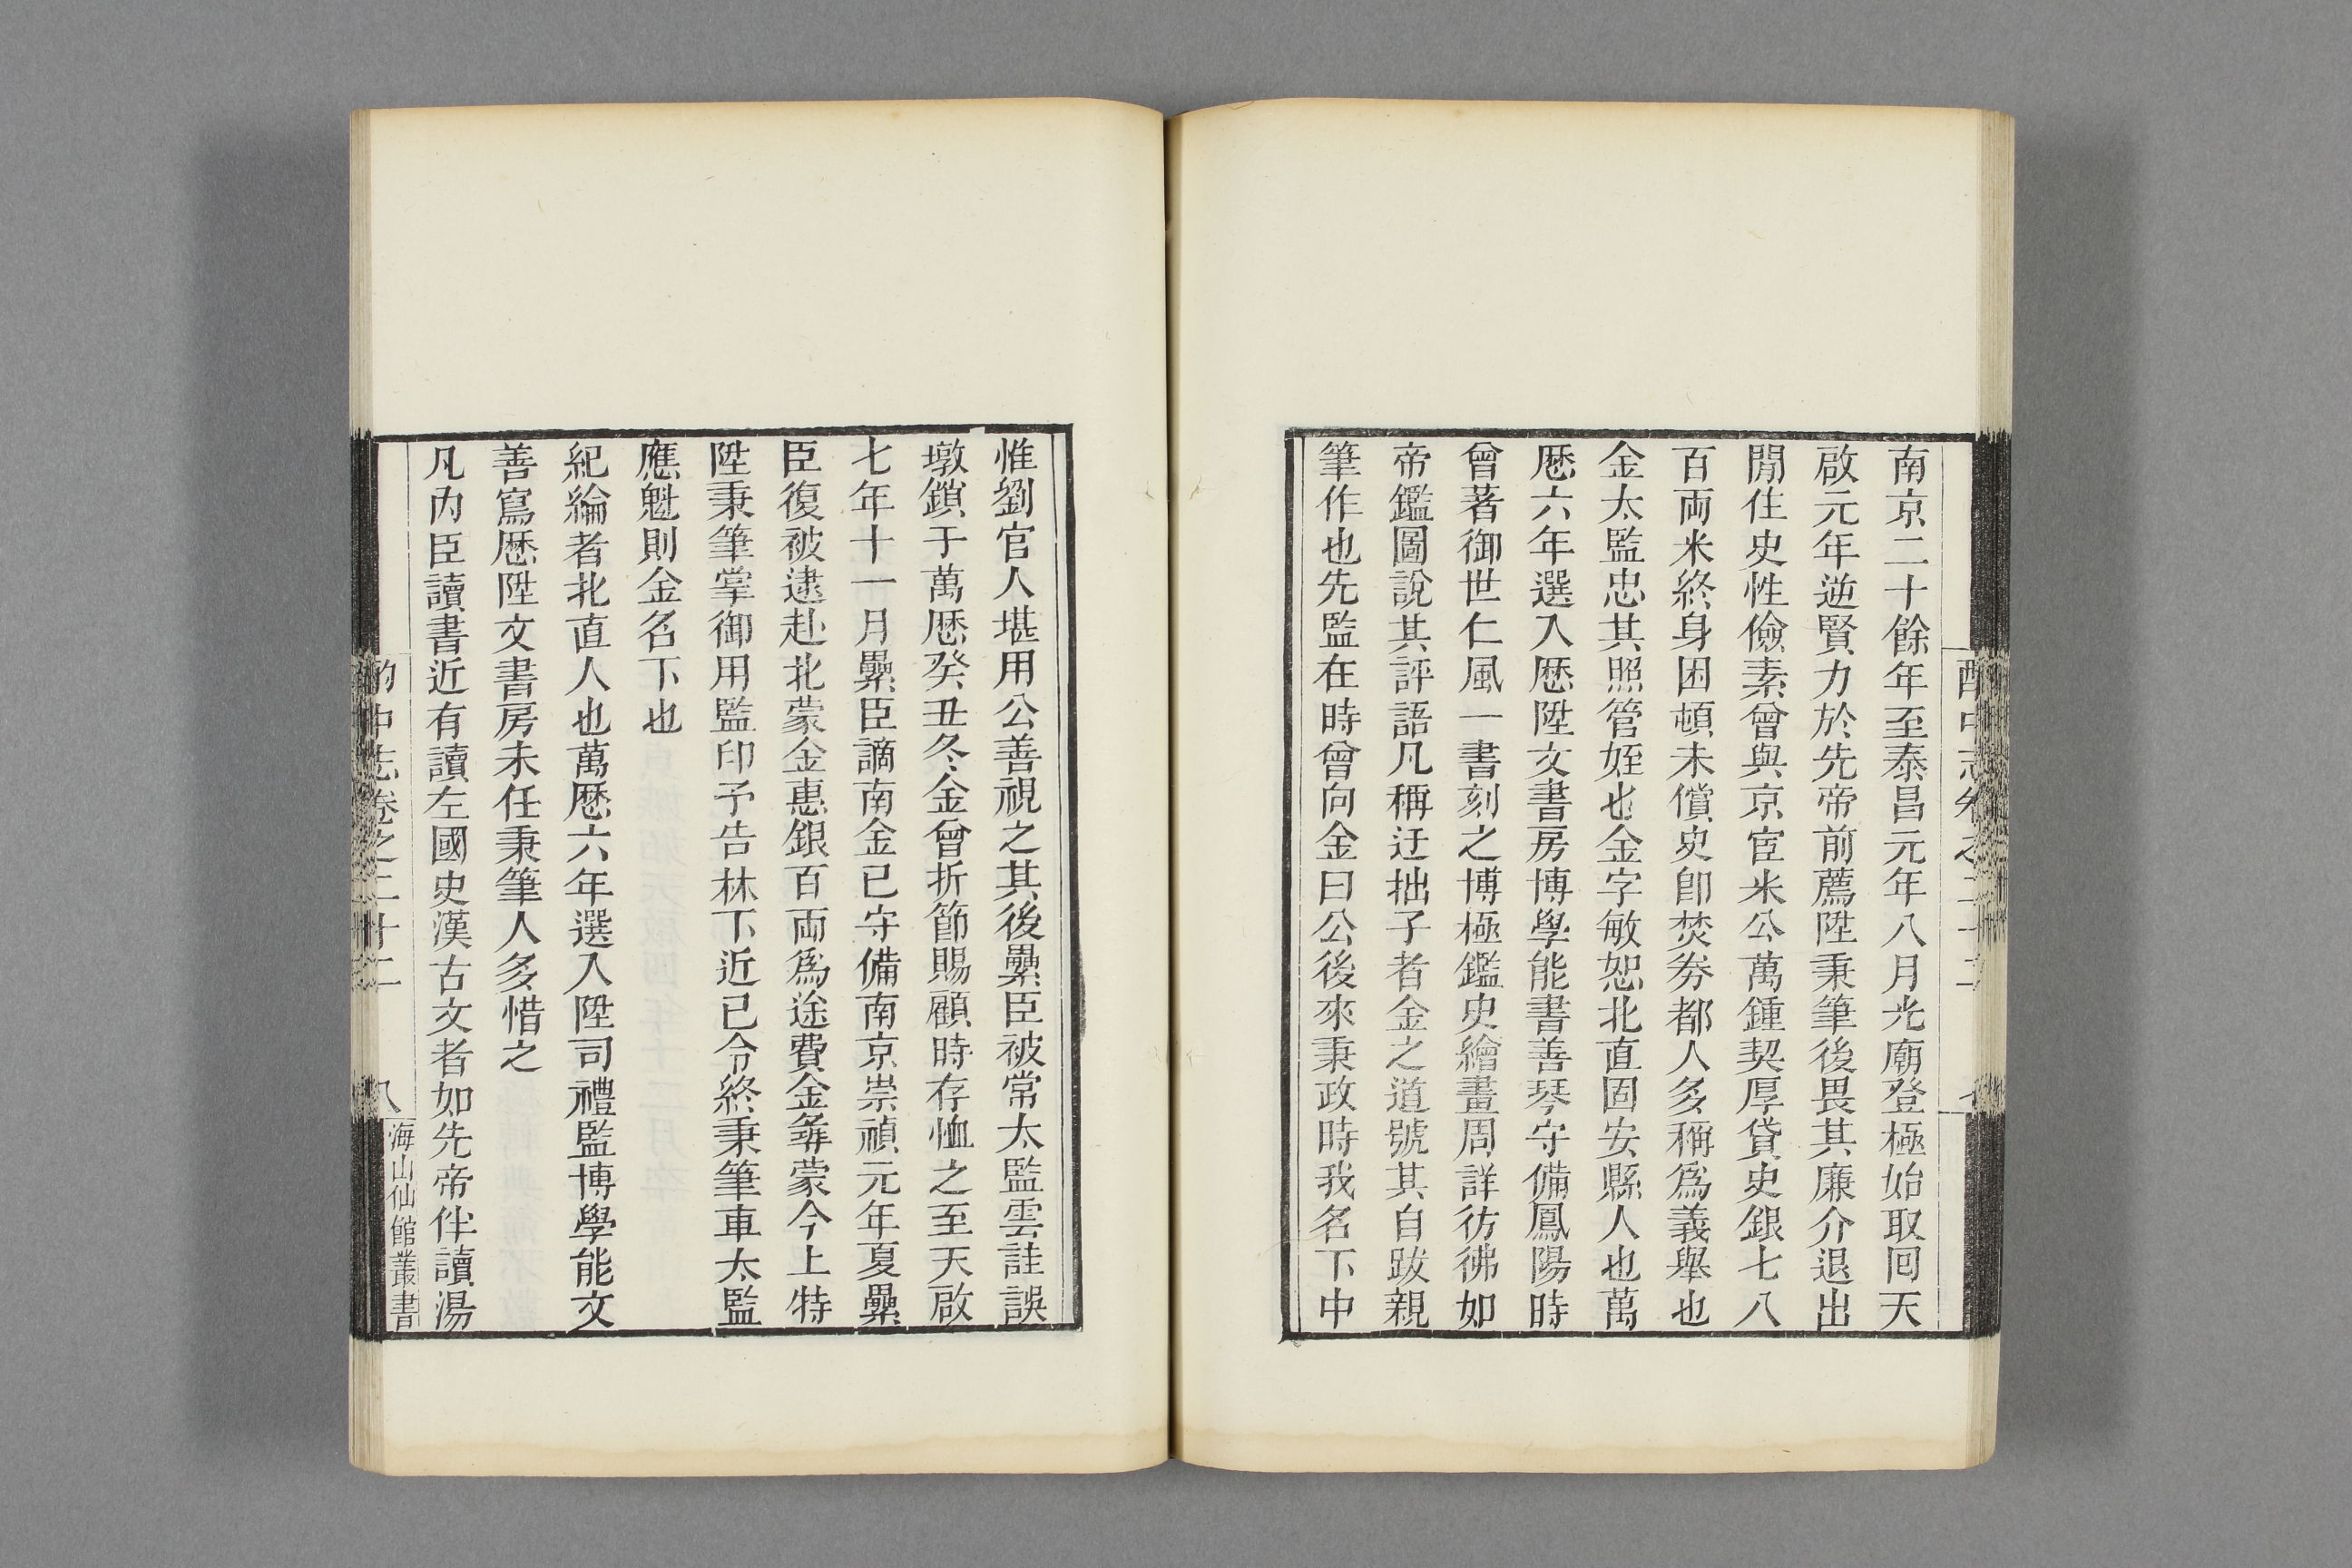 南京二十餘年至泰昌元年八月光廟登極始取回天
啟元年逆賢力於先帝前薦陞秉筆後畏其廉介退出
閒住史性儉素曾與京宦米公萬鍾契厚貸史銀七八
百両米終身困頓未償史卽焚券都人多稱爲義舉也
金太監忠其照管姪也金字敏恕北直固安縣人也萬
厯六年選入厯陞文書房博學能書善琴守備鳳陽時
曾著御世仁風一書刻之博極鑑史繪畫周詳彷彿如
帝鑑圖說其評語凡稱迂拙子者金之道號其自跋親
筆作也先監在時曾向金曰公後來秉政時我名下中
惟劉官人堪用公善視之其後纍臣被常太監雲詿誤
墩鎖于萬厯癸丑冬金曾折節賜顧時存恤之至天啟
七年十一月纍臣謫南金已守備南京崇禎元年夏纍
臣復被逮赴北蒙金惠銀百両爲途費金蒙今上特
陞秉筆掌御用監印予告林下近已令終秉筆車太監
應魁則金名下也
紀綸者北直人也萬厯六年選入陞司禮監博學能文
善寫厯陞文書房未任秉筆人多惜之
凡內臣讀書近有讀左國史漢古文者如先帝伴讀湯
酌中志卷之二十二 八 海山仙館叢書